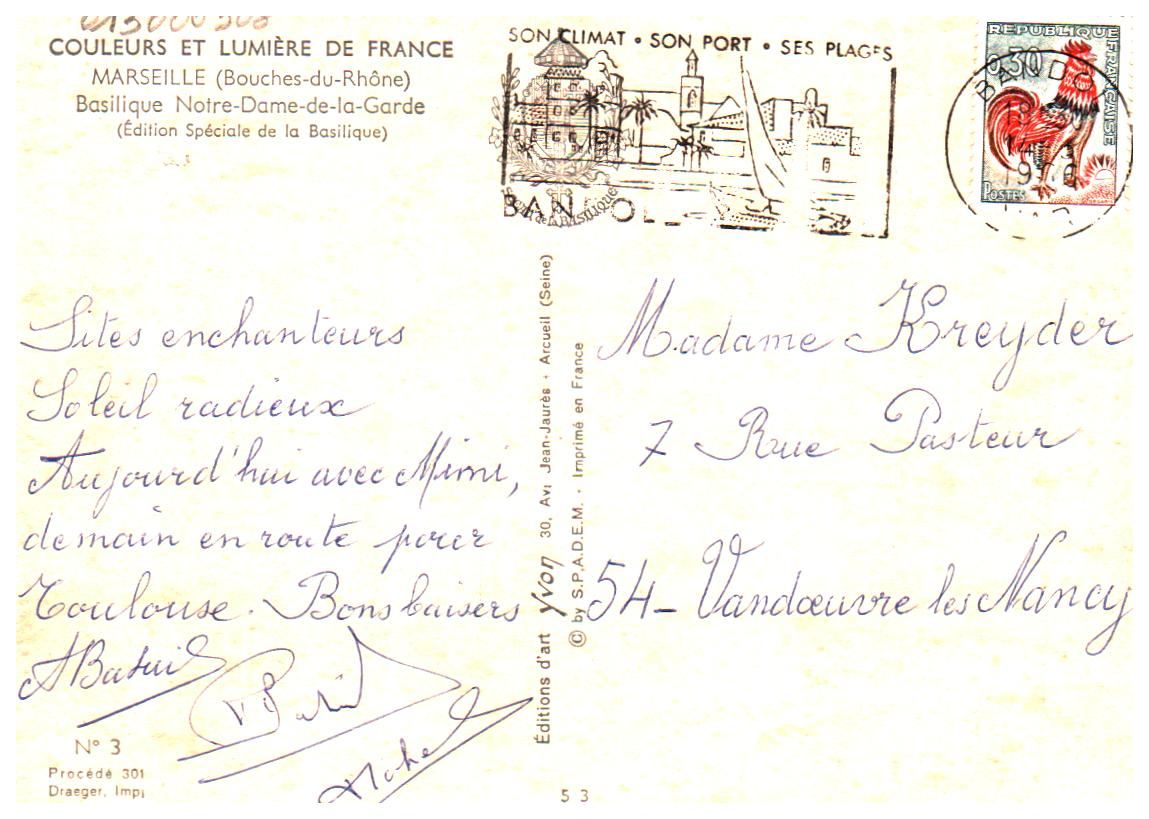 COULEURS ET LUMIÈRE DE FRANCE
MARSEILLE (Bouches-du-Rhône)
Basilique Notre-Dame-de-la-Garde
(Édition Spéciale de la Basilique)
SON CLIMAT • SON PORT • SES PLAGES
BANDOL
RÉPUBLIQUE FRANÇAISE
0,30
POSTES
Sites enchanteurs
Soleil radieux
Aujourd'hui avec Mimi,
demain en route pour
Toulouse. Bons baisers
Madame Kreyder
7 Rue Pasteur
54_ Vandœuvre les Nancy
Éditions d'art Yvon 30, Av. Jean-Jaurès - Arcueil (Seine)
© by S.P.A.D.E.M. - Imprimé en France
N° 3
Procédé 301
Draeger, Imp.
53